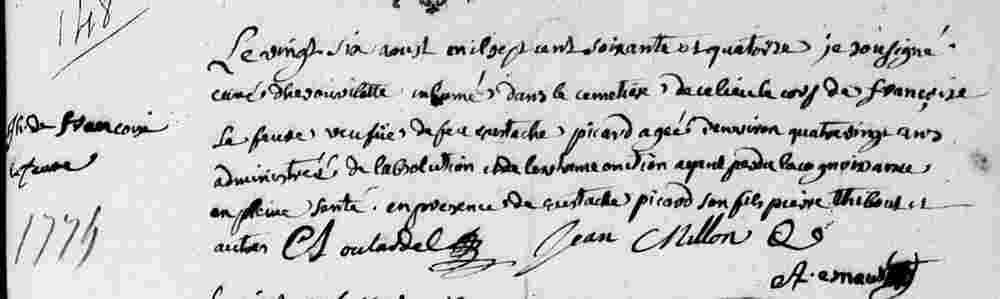 148
Le vingt six aoust mil sept cent soixante et quatorze je sousigné
curé d'herouvilette inhumé dans le cemetiere de ce lieu le corps de françoise
inh. de francoise
le feuvre
Le feuvre veufüe de feu eustache picard agée d'environ quatre vingt ans
administrée de l'absolution et de l'extreme onction ayant perdu la cognoissance
en pleine santé. en presence de eustache picard son fils pierre thibout et
1774
autres Jean Millon